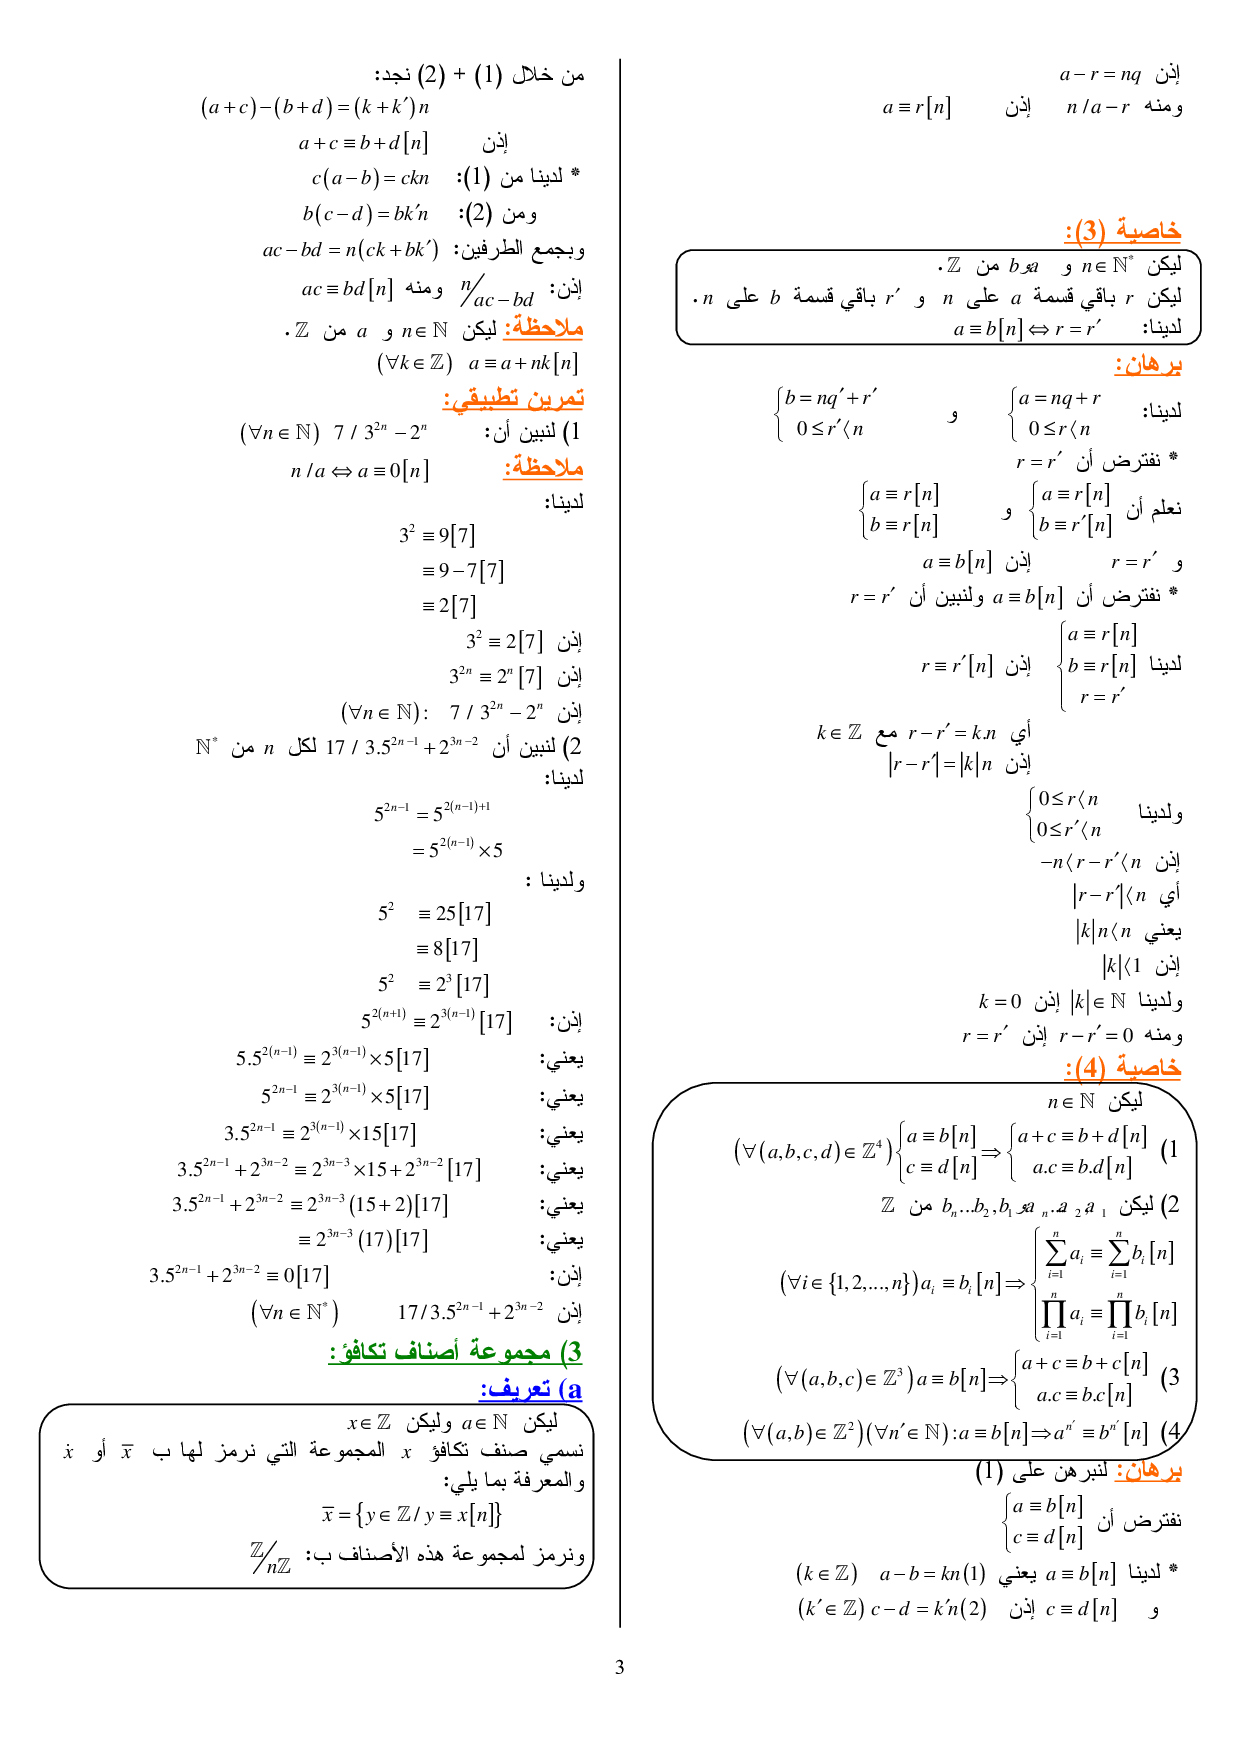 إذن a − r = nq
ومنه n / a − r إذن a ≡ r[n]
خاصية (3):
ليكن n ∈ ℕ* و a و b من ℤ .
ليكن r باقي قسمة a على n و r′ باقي قسمة b على n .
لدينا: a ≡ b[n] ⇔ r = r′
برهان:
لدينا: {a = nq + r ; 0 ≤ r⟨n و {b = nq′ + r′ ; 0 ≤ r′⟨n
* نفترض أن r = r′
نعلم أن {a ≡ r[n] ; b ≡ r′[n] و {a ≡ r[n] ; b ≡ r[n]
و r = r′ إذن a ≡ b[n]
* نفترض أن a ≡ b[n] ولنبين أن r = r′
لدينا {a ≡ r[n] ; b ≡ r[n] ; r = r′ إذن r ≡ r′[n]
أي r − r′ = k.n مع k ∈ ℤ
إذن |r − r′| = |k|n
ولدينا {0 ≤ r⟨n ; 0 ≤ r′⟨n
إذن −n⟨r − r′⟨n
أي |r − r′|⟨n
يعني |k|n⟨n
إذن |k|⟨1
ولدينا |k| ∈ ℕ إذن k = 0
ومنه r − r′ = 0 إذن r = r′
خاصية (4):
ليكن n ∈ ℕ
1) (∀(a,b,c,d) ∈ ℤ⁴) {a ≡ b[n] ; c ≡ d[n] ⇒ {a + c ≡ b + d[n] ; a.c ≡ b.d[n]
2) ليكن a₁, a₂ ... aₙ و b₁, b₂ ... bₙ من ℤ
(∀i ∈ {1,2,...,n}) aᵢ ≡ bᵢ[n] ⇒ {∑ᵢ₌₁ⁿ aᵢ ≡ ∑ᵢ₌₁ⁿ bᵢ[n] ; ∏ᵢ₌₁ⁿ aᵢ ≡ ∏ᵢ₌₁ⁿ bᵢ[n]
3) (∀(a,b,c) ∈ ℤ³) a ≡ b[n] ⇒ {a + c ≡ b + c[n] ; a.c ≡ b.c[n]
4) (∀(a,b) ∈ ℤ²)(∀n′ ∈ ℕ) : a ≡ b[n] ⇒ a^n′ ≡ b^n′[n]
برهان: لنبرهن على (1)
نفترض أن {a ≡ b[n] ; c ≡ d[n]
* لدينا a ≡ b[n] يعني (1) a − b = kn (k ∈ ℤ)
و c ≡ d[n] إذن (2) c − d = k′n (k′ ∈ ℤ)
من خلال (1) + (2) نجد:
(a + c) − (b + d) = (k + k′)n
إذن a + c ≡ b + d[n]
* لدينا من (1): c(a − b) = ckn
ومن (2): b(c − d) = bk′n
وبجمع الطرفين: ac − bd = n(ck + bk′)
إذن: n/ac − bd ومنه ac ≡ bd[n]
ملاحظة: ليكن n ∈ ℕ و a من ℤ .
(∀k ∈ ℤ) a ≡ a + nk[n]
تمرين تطبيقي:
1) لنبين أن: (∀n ∈ ℕ) 7 / 3²ⁿ − 2ⁿ
ملاحظة: n / a ⇔ a ≡ 0[n]
لدينا:
3² ≡ 9[7]
≡ 9 − 7[7]
≡ 2[7]
إذن 3² ≡ 2[7]
إذن 3²ⁿ ≡ 2ⁿ[7]
إذن (∀n ∈ ℕ) : 7 / 3²ⁿ − 2ⁿ
2) لنبين أن 17 / 3.5²ⁿ⁻¹ + 2³ⁿ⁻² لكل n من ℕ*
لدينا:
5²ⁿ⁻¹ = 5²⁽ⁿ⁻¹⁾⁺¹
= 5²⁽ⁿ⁻¹⁾ × 5
ولدينا :
5² ≡ 25[17]
≡ 8[17]
5² ≡ 2³[17]
إذن: 5²⁽ⁿ⁺¹⁾ ≡ 2³⁽ⁿ⁻¹⁾[17]
يعني: 5.5²⁽ⁿ⁻¹⁾ ≡ 2³⁽ⁿ⁻¹⁾ × 5[17]
يعني: 5²ⁿ⁻¹ ≡ 2³⁽ⁿ⁻¹⁾ × 5[17]
يعني: 3.5²ⁿ⁻¹ ≡ 2³⁽ⁿ⁻¹⁾ × 15[17]
يعني: 3.5²ⁿ⁻¹ + 2³ⁿ⁻² ≡ 2³ⁿ⁻³ × 15 + 2³ⁿ⁻²[17]
يعني: 3.5²ⁿ⁻¹ + 2³ⁿ⁻² ≡ 2³ⁿ⁻³(15 + 2)[17]
يعني: ≡ 2³ⁿ⁻³(17)[17]
إذن: 3.5²ⁿ⁻¹ + 2³ⁿ⁻² ≡ 0[17]
إذن 17 / 3.5²ⁿ⁻¹ + 2³ⁿ⁻² (∀n ∈ ℕ*)
3) مجموعة أصناف تكافؤ:
a) تعريف:
ليكن a ∈ ℕ وليكن x ∈ ℤ
نسمي صنف تكافؤ x المجموعة التي نرمز لها ب x̅ أو ẋ
والمعرفة بما يلي:
x̅ = {y ∈ ℤ / y ≡ x[n]}
ونرمز لمجموعة هذه الأصناف ب: ℤ/nℤ
3